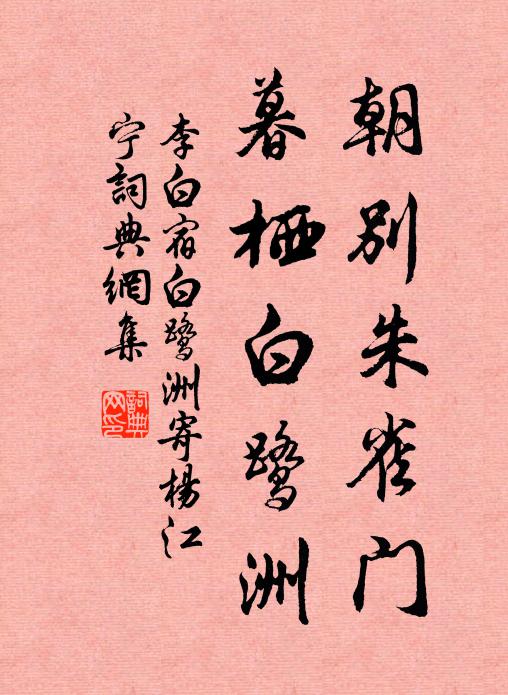 朝别朱雀门
暮栖白鹭洲
李白宿白鹭洲寄杨江
宁詞典網集
詞典网印